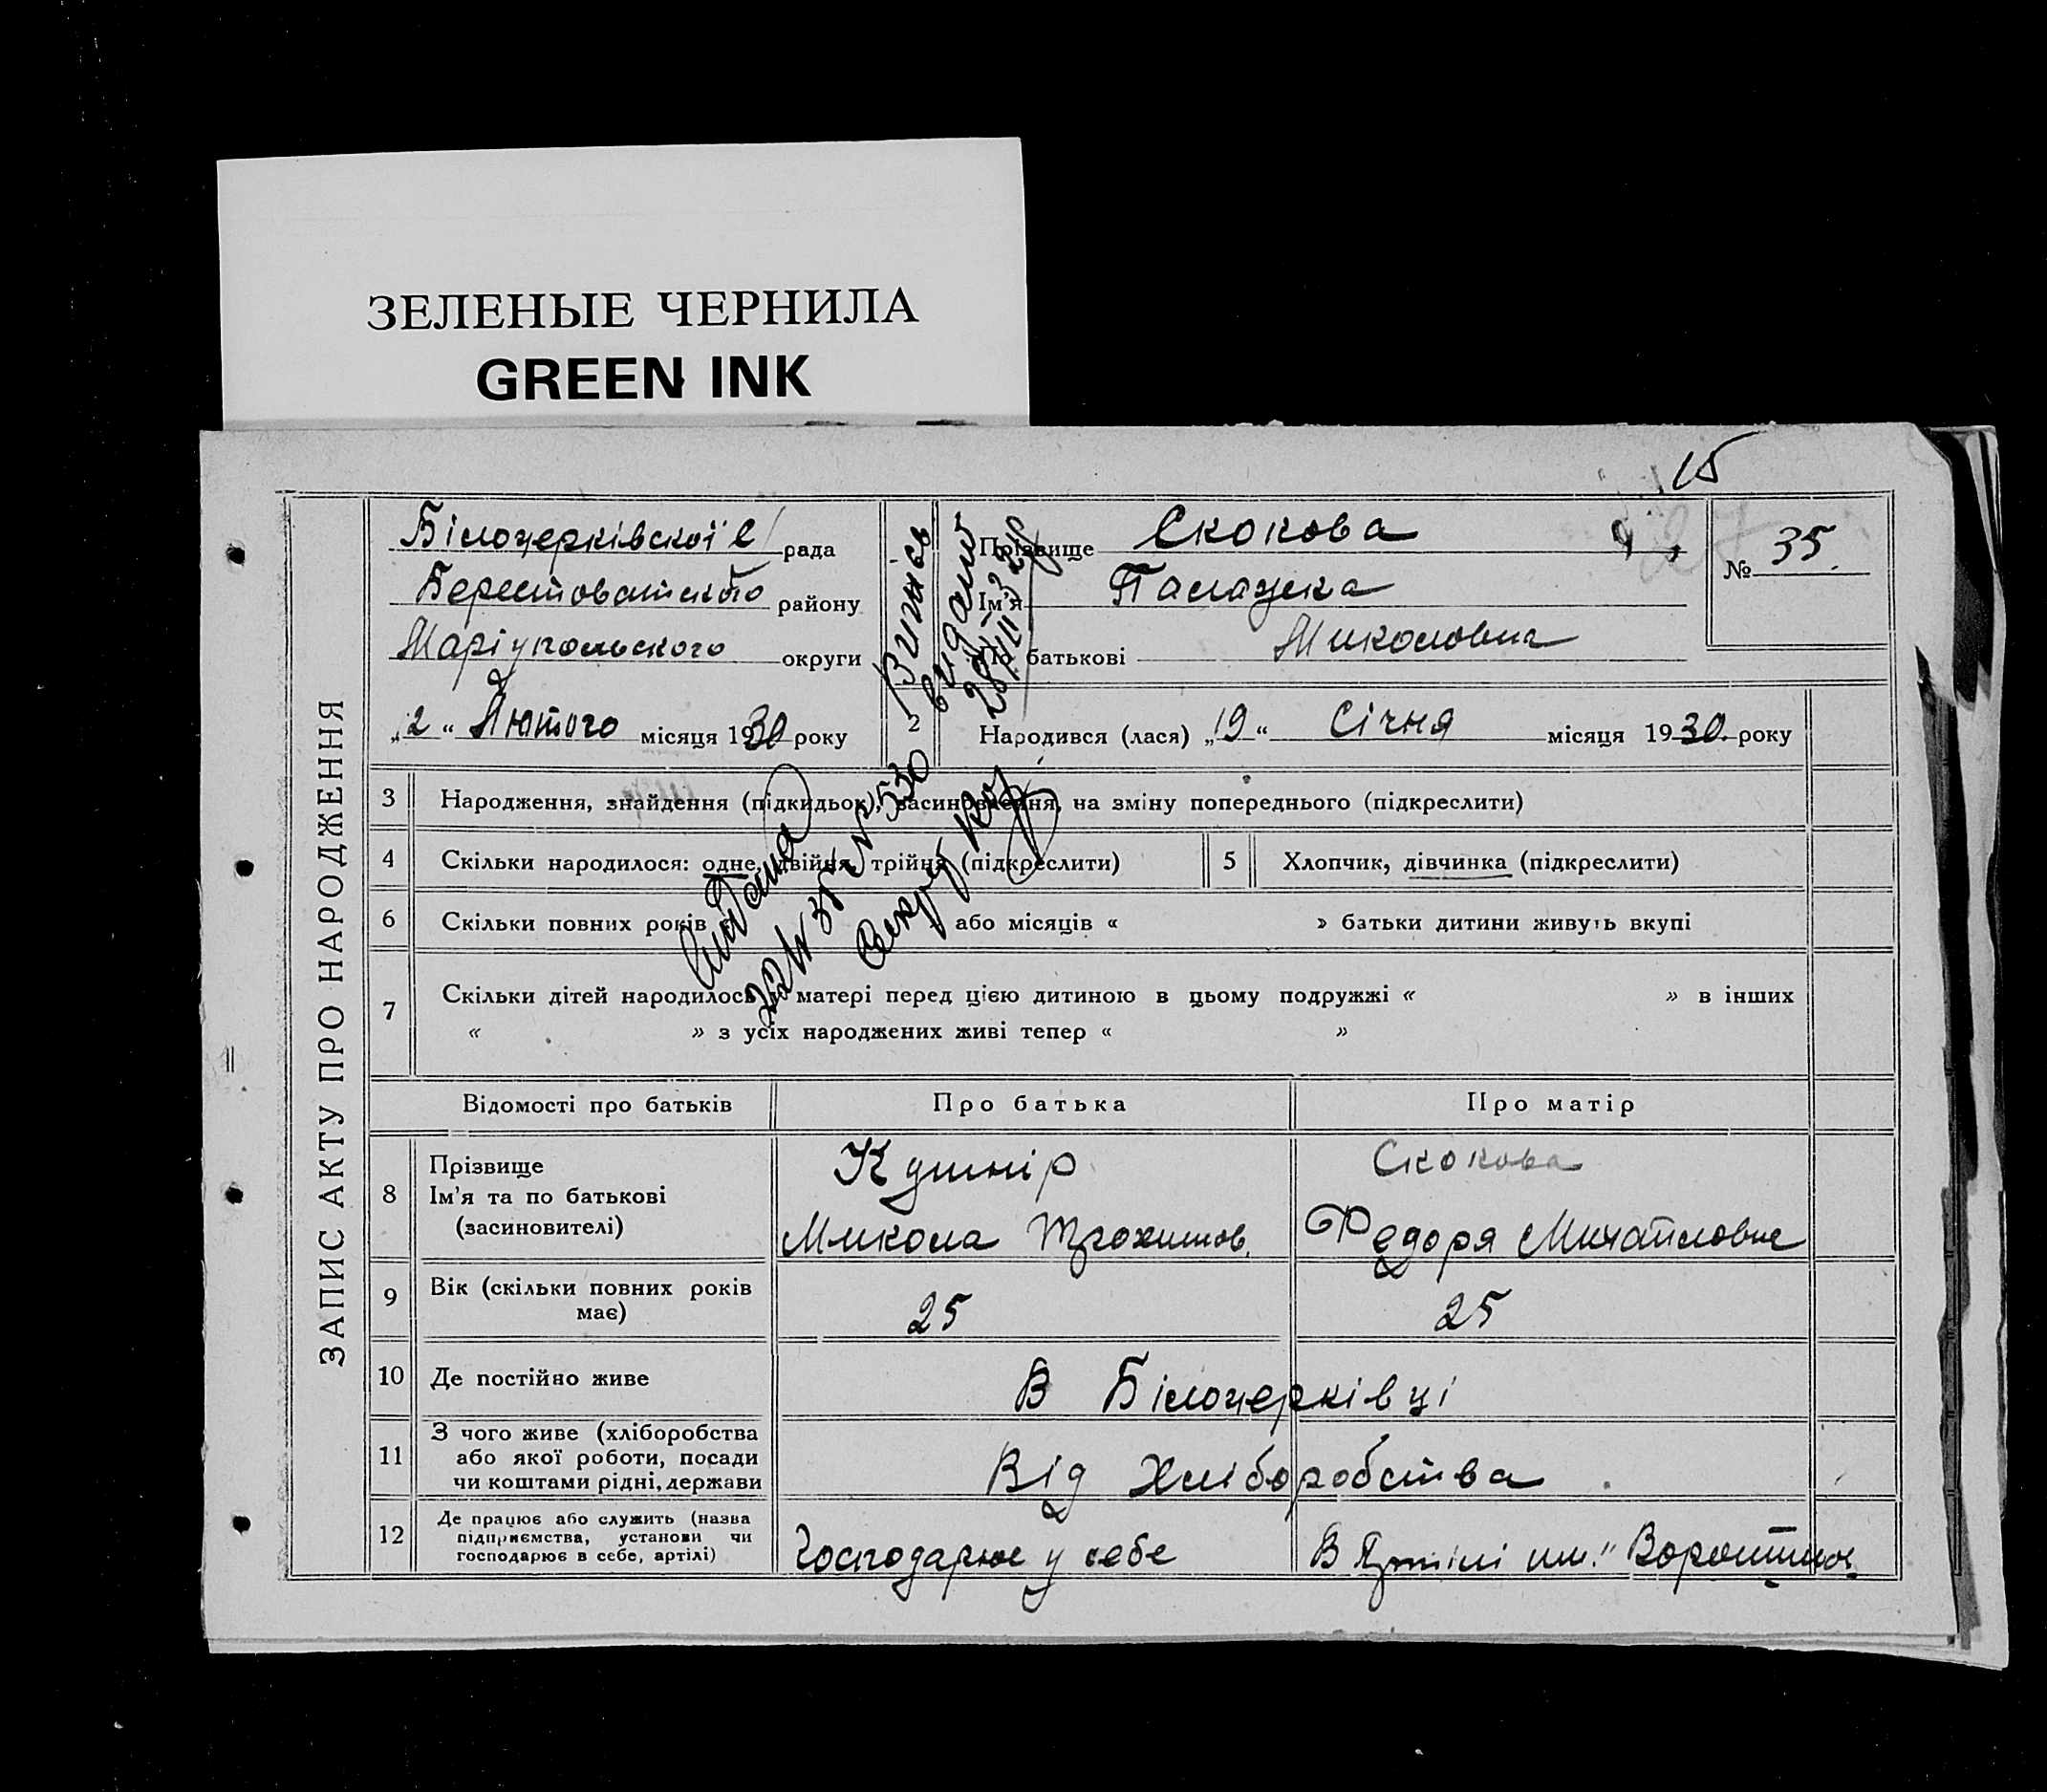 ЗЕЛЕНЫЕ ЧЕРНИЛА
GREEN INK
15
ЗАПИС АКТУ ПРО НАРОДЖЕННЯ
Білоцерківської с/ рада
Берестоватського району
Маріупольського округи
„2“ Лютого місяця 1930 року
Прізвище Скокова
Ім'я Палажка
По батькові Миколовна
№ 35.
2 Народився (лася) „19“ Січня місяця 1930 року
Випись
видано
Видана
№ 530
3 Народження, знайдення (підкидьок), засиновлення, на зміну попереднього (підкреслити)
4 Скільки народилося: одне, двійня, трійня (підкреслити) 5 Хлопчик, дівчинка (підкреслити)
6 Скільки повних років або місяців « » батьки дитини живуть вкупі
7 Скільки дітей народилось у матері перед цією дитиною в цьому подружжі « » в інших
« » з усіх народжених живі тепер « »
Відомості про батьків Про батька Про матір
8 Прізвище Ім'я та по батькові (засиновителі)
Кушнір Скокова
Микола Трохимов. Федоря Михайловне
9 Вік (скільки повних років має) 25 25
10 Де постійно живе В Білоцерківці
11 З чого живе (хліборобства або якої роботи, посади чи коштами рідні, держави Від Хліборобства
12 Де працює або служить (назва підприємства, установи чи господарює в себе, артілі) Господарює у себе В Артілі им."